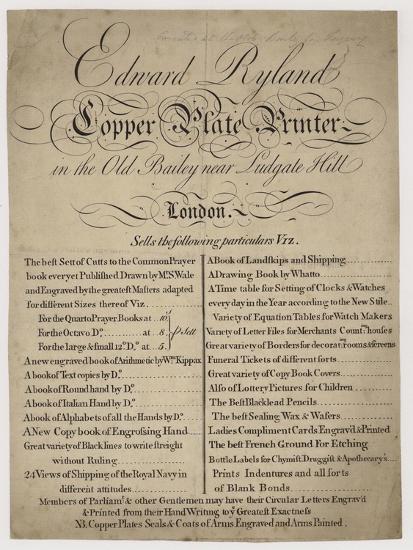 Edward Ryland
Copper Plate Printer
in the Old Bailey near Ludgate Hill
London.
Sells the following particulars Viz.
The best Sett of Cutts to the Common Prayer
book ever yet Published Drawn by Mr. S Wale
and Engraved by the greatest Masters adapted
for different Sizes thereof Viz.
For the Quarto Prayer Books at 10s
For the Octavo Do. at 8. ⅌ Sett
For the large & small 12o. Do. at 5.
A new engraved book of Arithmetic by Wm. Kippax
A book of Text copies by Do.
A book of Round hand by Do.
A book of Italian Hand by Do.
A book of Alphabets of all the Hands by Do.
A New Copy book of Engrossing Hand
Great variety of Black lines to write streight
without Ruling
24 Views of Shipping of the Royal Navy in
different attitudes
A Book of Landskips and Shipping
A Drawing Book by Whatto
A Time table for Setting of Clocks & Watches
every day in the Year according to the New Stile
Variety of Equation Tables for Watch Makers
Variety of Letter Files for Merchants Countg. houses
Great variety of Borders for decoratg. rooms & screens
Funeral Tickets of different sorts
Great variety of Copy Book Covers
Also of Lottery Pictures for Children
The Best Blacklead Pencils
The best Sealing Wax & Wafers
Ladies Compliment Cards Engrav'd & Printed
The best French Ground For Etching
Bottle Labels for Chymist Druggist & Apothecary's
Prints Indentures and all sorts
of Blank Bonds
Members of Parliamt. & other Gentlemen may have their Circular Letters Engrav'd
& Printed from their Hand Writing to ye Greatest Exactness
NB. Copper Plates Seals & Coats of Arms Engraved and Arms Painted.